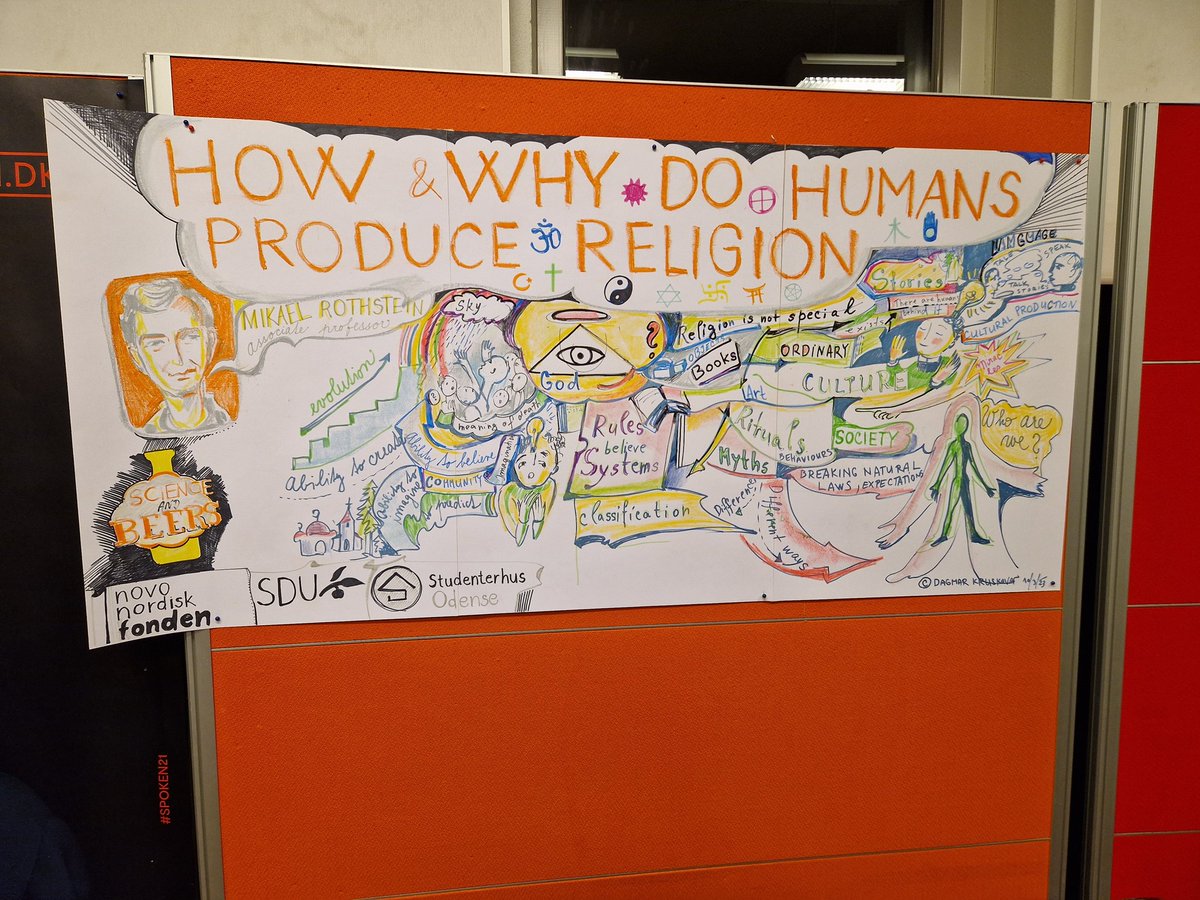 HOW & WHY DO HUMANS
PRODUCE ॐ RELIGION
MIKAEL ROTHSTEIN
associate professor
SCIENCE
AND
BEERS
novo
nordisk
fonden
SDU
Studenterhus
Odense
evolution
Ability to create
Sky
meaning of death
Ability to believe
Ability to
imagine
COMMUNITY
predict
imagination
God
?
Rules
believe
Systems
classification
Religion is not special
exists
OBJECTS
Books
ORDINARY
Art
CULTURE
Rituals
BEHAVIOURS
Myths
SOCIETY
BREAKING NATURAL
LAWS, EXPECTATIONS
Difference
Different ways
Stories
There are human
behind it
LANGUAGE
TALK
SPEAK
TALK
STORIES
CULTURAL PRODUCTION
Who are
we?
© DAGMAR
I.DK
#SPOKEN21